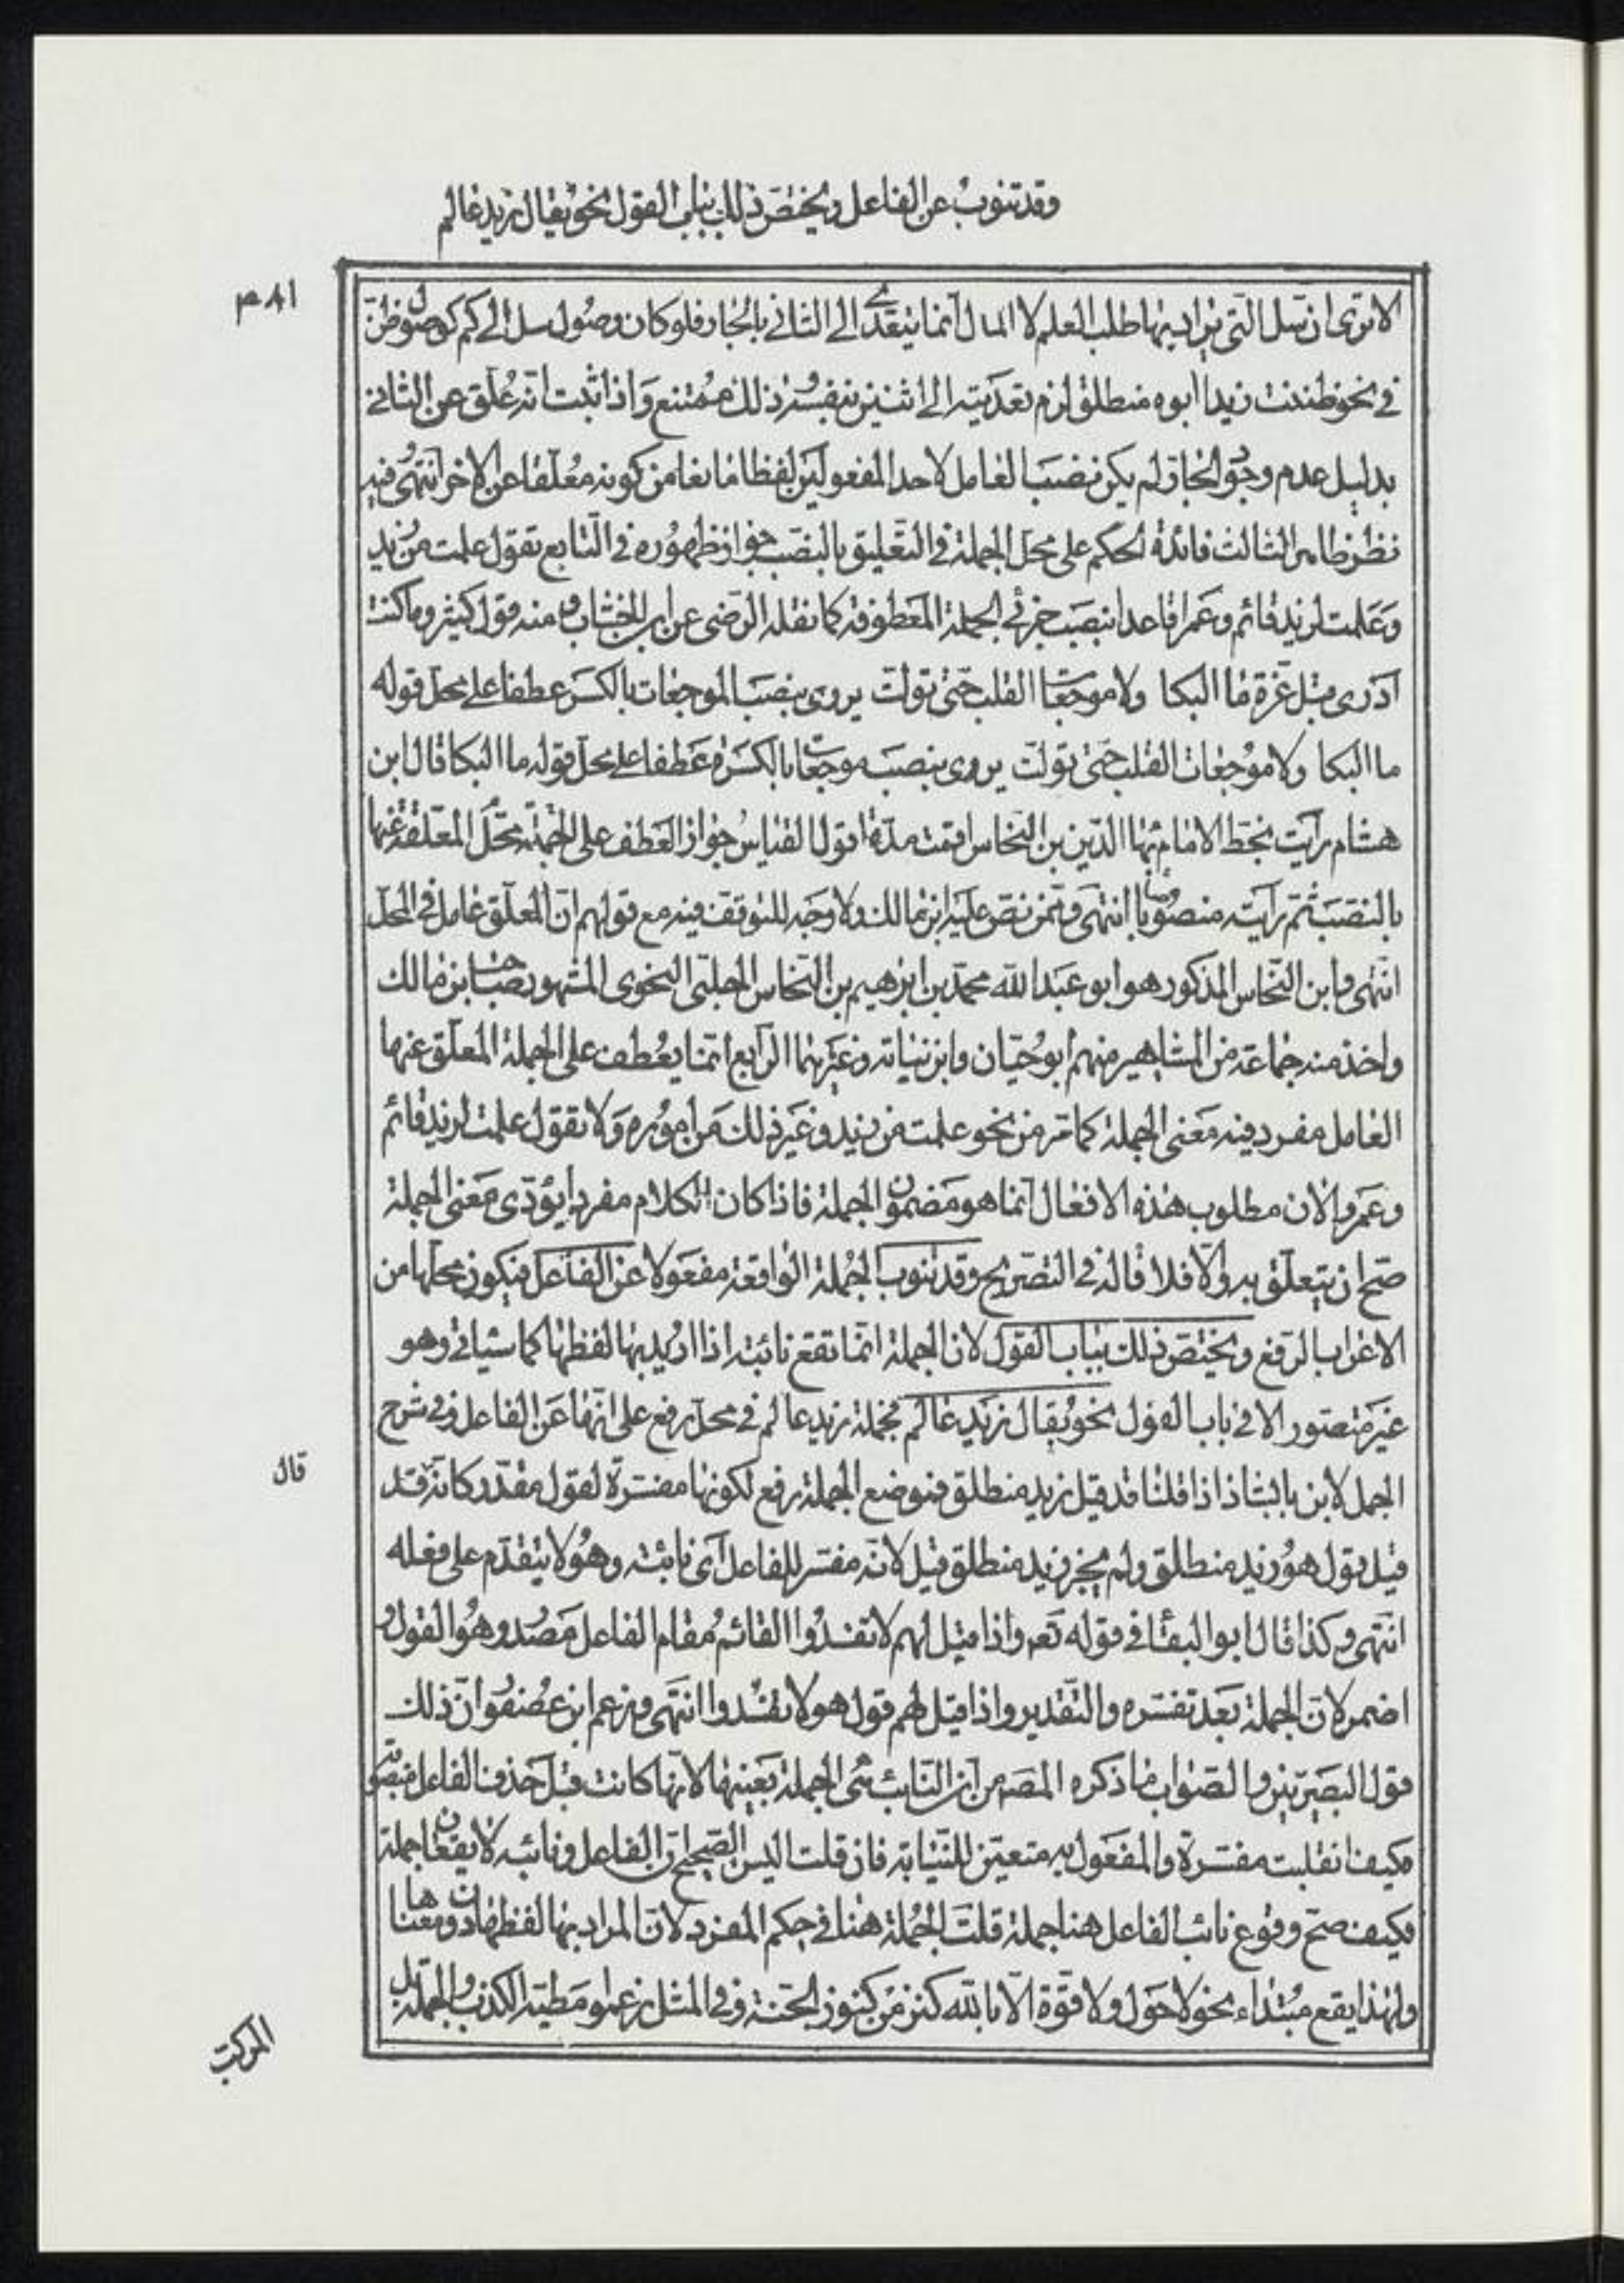 وقد تنوب عن الفاعل ويختص ذلك بباب القول نحو يقال زيد عالم
٤٨١
لا ترى ان سل التى يراد بها طلب العلم لا المال انما يتعدى الى الثانى بالجار فلو كان وصول سل الى كم كوصول ظن
فى نحو ظننت زيدا ابوه منطلق لزم تعديته الى اثنين بنفسه وذلك ممتنع واذا ثبت انه علق عن الثانى
بدليل عدم وجود الجار لم يكن نصب العامل لاحد المفعولين لفظا مانعا من كونه معلقا عن الاخر انتهى وفيه
نظر ظاهر الثالث فائدة الحكم على محل الجملة فى التعليق بالنصب جواز ظهوره فى التابع تقول علمت من زيد
وعلمت لزيد قائم وعمرا قاعدا بنصب جزئى الجملة المعطوفة كما نقله الرضى عن ابن الخشاب ومنه قول كثير وما كنت
ادرى قبل عزة ما البكا ولا موجعات القلب حتى تولت يروى بنصب الموجعات بالكسر عطفا على محل قوله
ما البكا ولا موجعات القلب حتى تولت يروى بنصب موجعات بالكسرة عطفا على محل قوله ما البكا قال ابن
هشام رايت بخط الامام بهاء الدين بن النحاس اقمت مدة اقول القياس جواز العطف على الجملة محل المعلقة عنها
بالنصب ثم رايته منصوصا انتهى وممن نص عليه ابن مالك ولا وجه للتوقف فيه مع قولهم ان المعلق عامل فى المحل
انتهى وابن النحاس المذكور هو ابو عبد الله محمد بن ابرهيم بن النحاس الحلبى النحوى المشهور صاحب ابن مالك
واخذ منه جماعة من المشاهير منهم ابو حيان وابن نباته وغيرهما الرابع انما يعطف على الجملة المعلق عنها
العامل مفرد فيه معنى الجملة كما مر من نحو علمت من زيد وغير ذلك من اموره ولا تقول علمت لزيد قائم
وعمرو لان مطلوب هذه الافعال انما هو مضمون الجملة فاذا كان الكلام مفردا يؤدى معنى الجملة
صح ان يتعلق به والا فلا قاله فى التصريح وقد تنوب الجملة الواقعة مفعولا عن الفاعل فيكون محلها من
الاعراب الرفع ويختص ذلك بباب القول لان الجملة انما تقع نائبة اذا اريد بها لفظها كما سياتى وهو
غير متصور الا فى باب القول نحو يقال زيد عالم فجملة زيد عالم فى محل رفع على انها عن الفاعل وفى شرح
الجمل لابن بابشاذ اذا قلنا قد قيل زيد منطلق فموضع الجملة رفع لكونها مفسرة لقول مقدر كانه قد
قال
قيل قول هو زيد منطلق ولم يجز زيد منطلق قيل لانه مفسر للفاعل اى نائبه وهو لا يتقدم على فعله
انتهى وكذا قال ابو البقاء فى قوله تعه واذا قيل لهم لا تفسدوا القائم مقام الفاعل مصدر وهو القول و
اضمر لان الجملة بعد تفسره والتقدير واذا قيل لهم قول هو لا تفسدوا انتهى وزعم ابن عصفور ان ذلك
قول البصريين والصواب ما ذكره المصه من ان النائب هى الجملة بعينها لانها كانت قبل حذف الفاعل منصوبة
فكيف انقلبت مفسرة والمفعول به متعين للنيابة فان قلت اليس الصحيح ان الفاعل ونائبه لا يقعان جملة
فكيف صح وقوع نائب الفاعل هنا جملة قلت الجملة هنا فى حكم المفرد لان المراد بها لفظها دون معناها
ولهذا يقع مبتداء نحو لا حول ولا قوة الا بالله كنز من كنوز الجنة وفى المثل زعموا مطية الكذب والجملة بل
المركب